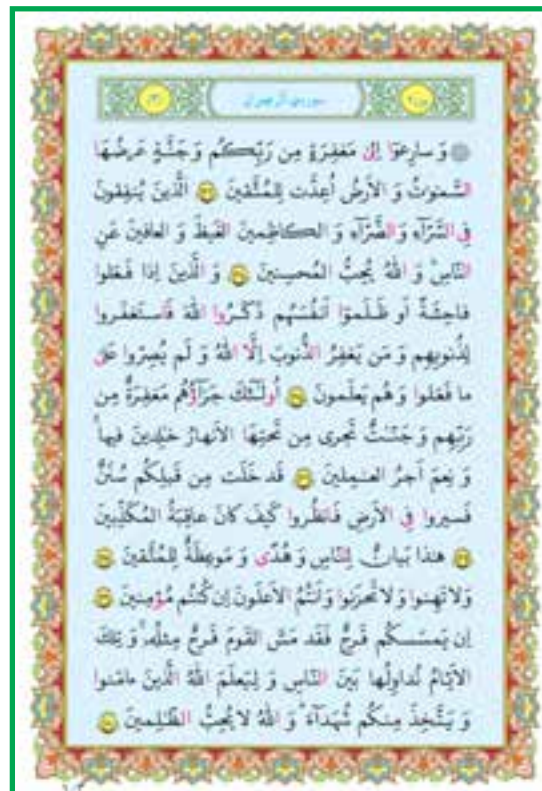 جزء ۴ سورة آل عمران (۳)
وَ سارِعوا إِلىٰ مَغفِرَةٍ مِن رَبِّكُم وَ جَنَّةٍ عَرضُهَا
السَّمٰوٰتُ وَ الأَرضُ أُعِدَّت لِلمُتَّقينَ ۝ الَّذينَ يُنفِقونَ
فِي السَّرّآءِ وَ الضَّرّآءِ وَ الكاظِمينَ الغَيظَ وَ العافينَ عَنِ
النّاسِ وَ اللهُ يُحِبُّ المُحسِنينَ ۝ وَ الَّذينَ إِذا فَعَلوا
فاحِشَةً أَو ظَلَموا أَنفُسَهُم ذَكَرُوا اللهَ فَاستَغفَروا
لِذُنوبِهِم وَ مَن يَغفِرُ الذُّنوبَ إِلَّا اللهُ وَ لَم يُصِرّوا عَلىٰ
ما فَعَلوا وَ هُم يَعلَمونَ ۝ أُولٰٓئِكَ جَزآؤُهُم مَغفِرَةٌ مِن
رَبِّهِم وَ جَنّٰتٌ تَجري مِن تَحتِهَا الأَنهارُ خٰلِدينَ فيها
وَ نِعمَ أَجرُ العٰمِلينَ ۝ قَد خَلَت مِن قَبلِكُم سُنَنٌ
فَسيروا فِي الأَرضِ فَانظُروا كَيفَ كانَ عاقِبَةُ المُكَذِّبينَ
۝ هٰذا بَيانٌ لِلنّاسِ وَ هُدًى وَ مَوعِظَةٌ لِلمُتَّقينَ ۝
وَ لا تَهِنوا وَ لا تَحزَنوا وَ أَنتُمُ الأَعلَونَ إِن كُنتُم مُؤمِنينَ ۝
إِن يَمسَسكُم قَرحٌ فَقَد مَسَّ القَومَ قَرحٌ مِثلُهُ وَ تِلكَ
الأَيّامُ نُداوِلُها بَينَ النّاسِ وَ لِيَعلَمَ اللهُ الَّذينَ ءامَنوا
وَ يَتَّخِذَ مِنكُم شُهَدآءَ وَ اللهُ لا يُحِبُّ الظّٰلِمينَ ۝